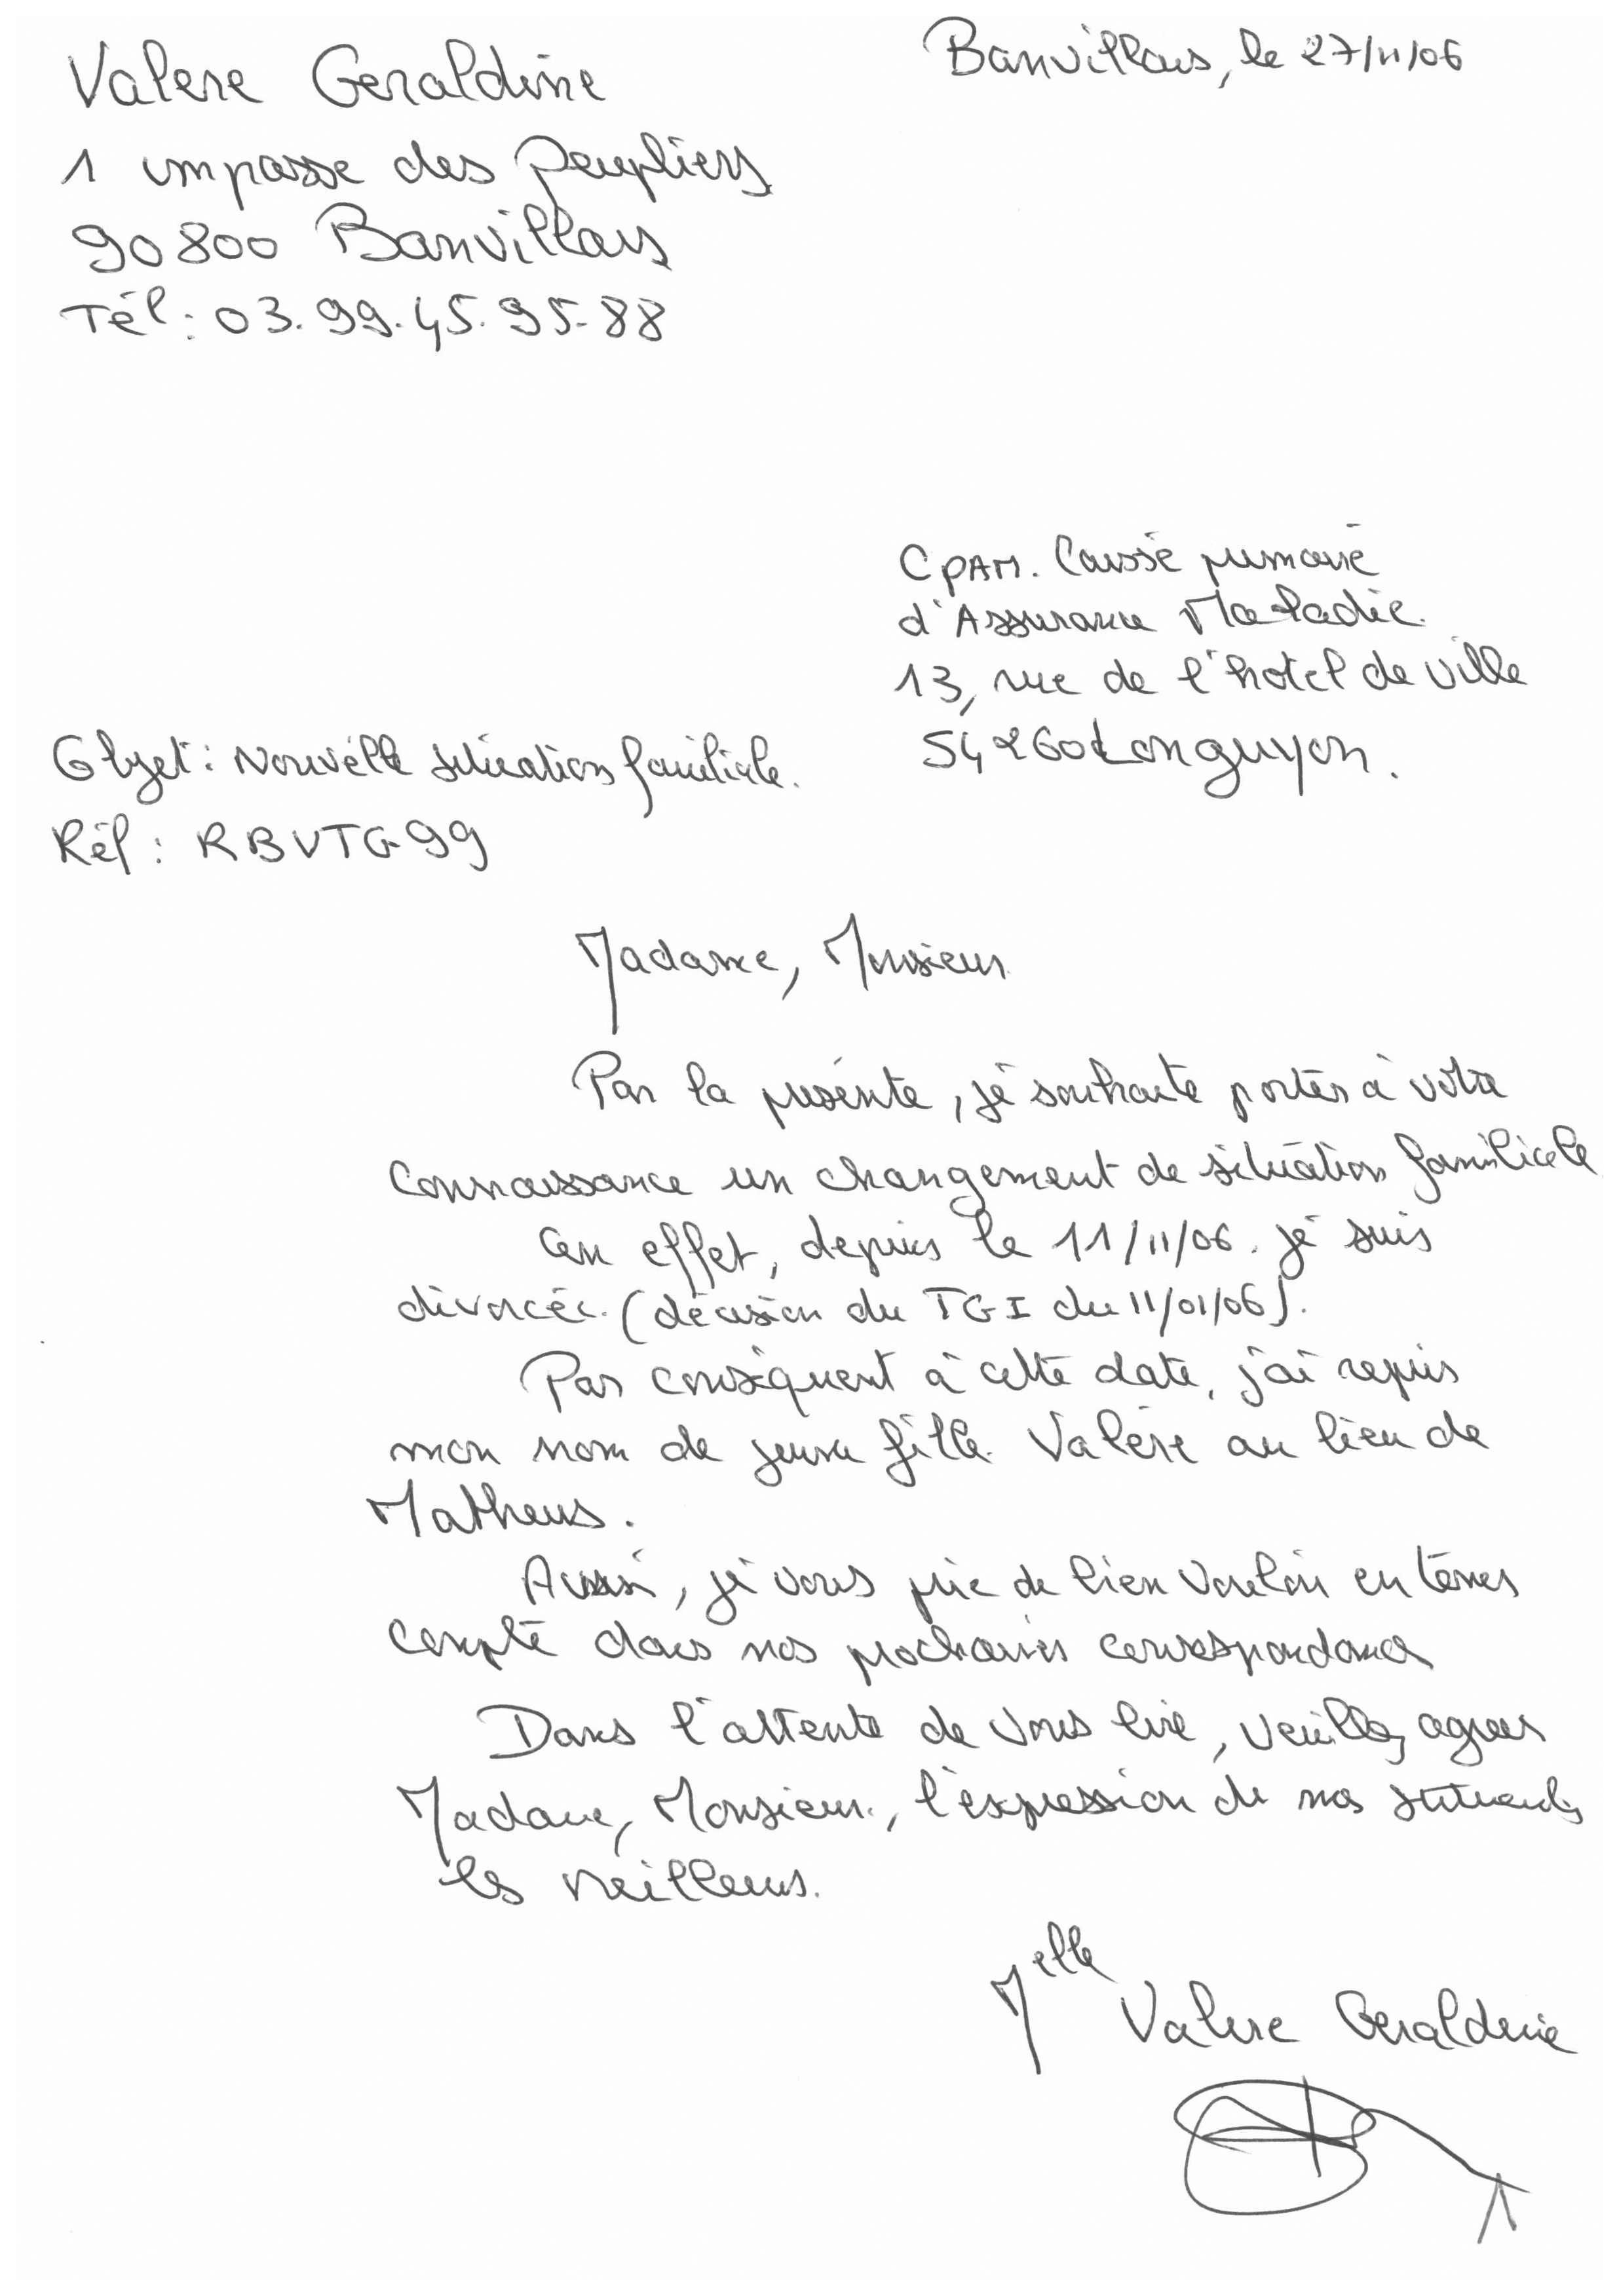 Valere Geraldine
Banvillars, le 27/11/06
1 impasse des Peupliers
90800 Banvillars
Tél : 03.99.45.95.88
CPAM. Caisse primaire
d'Assurance Maladie.
13, rue de l'hotel de ville
54260 Longuyon.
Objet : Nouvelle situation familiale.
Réf : RBVTG99
Madame, Monsieur
Par la présente, je souhaite porter à votre
connaissance un changement de situation familiale
En effet, depuis le 11/11/06. je suis
divorcée. (décision du TGI du 11/01/06).
Par conséquent à cette date, j'ai repris
mon nom de jeune fille Valère au lieu de
Matheus.
Aussi, je vous prie de bien vouloir en tenir
compte dans nos prochaines correspondances
Dans l'attente de vous lire, veuillez agréer
Madame, Monsieur, l'expression de mes sentiments
les meilleurs.
Melle Valere Geraldine